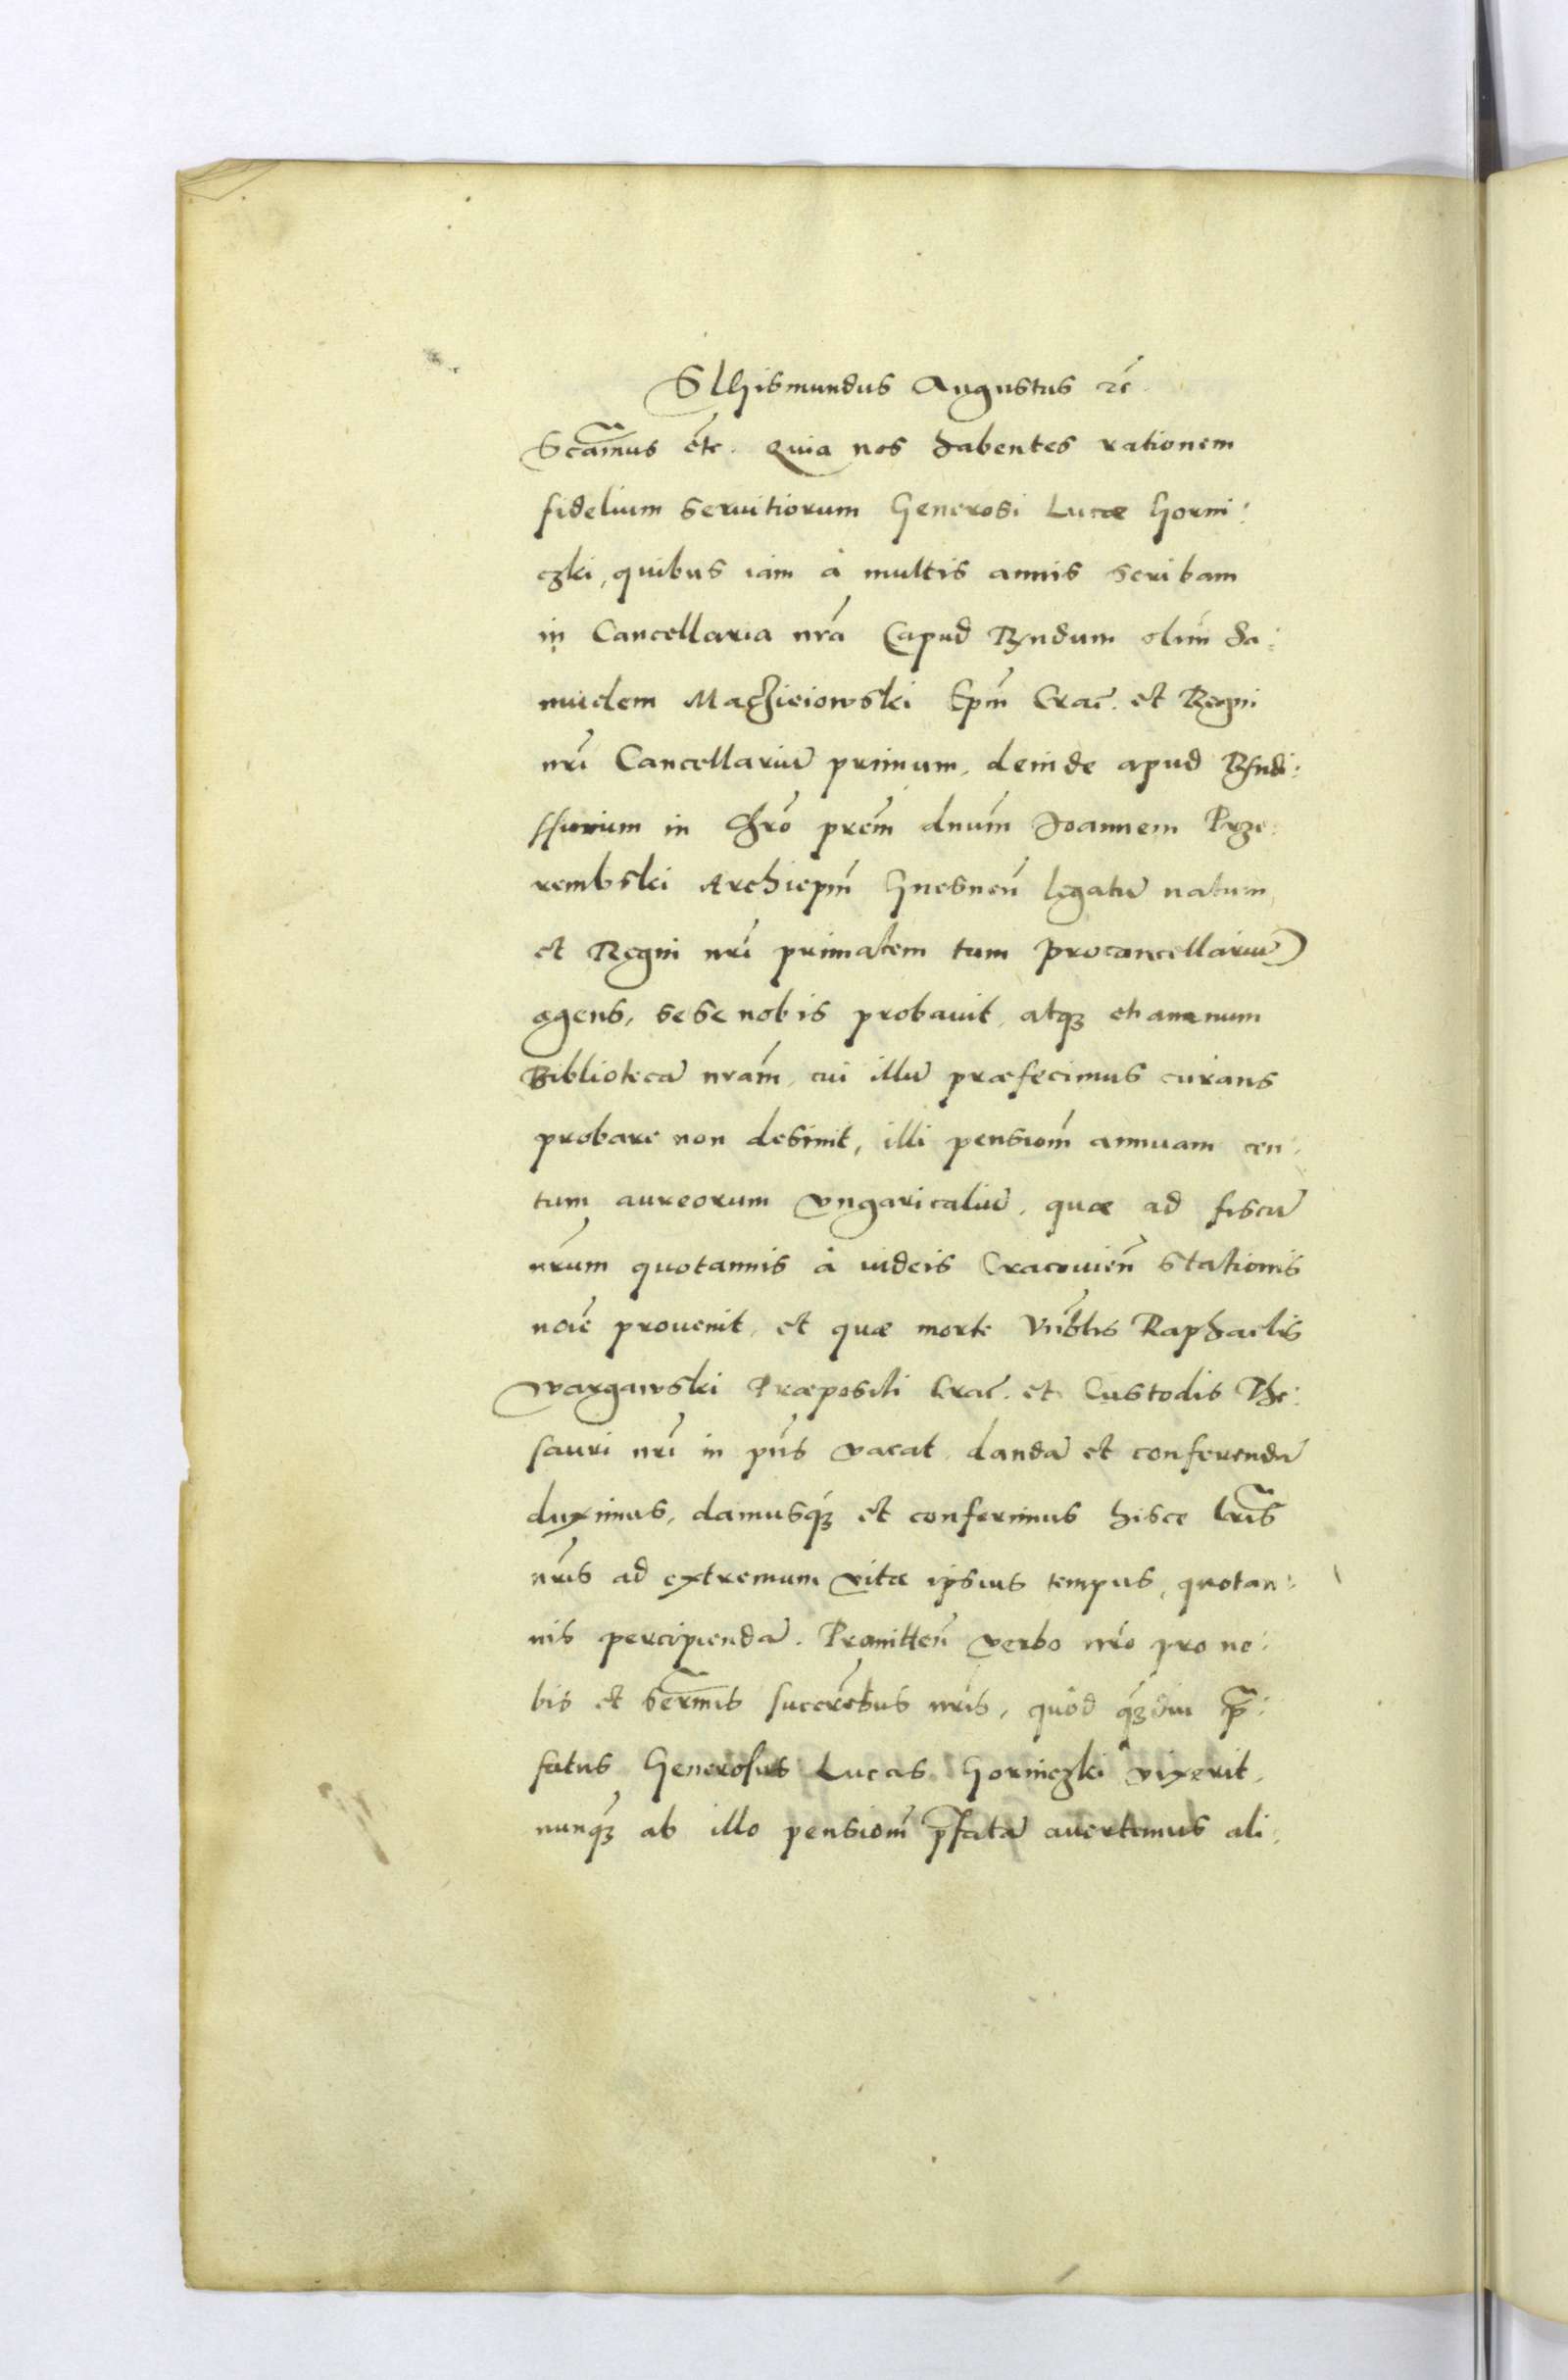 SIGhismundus Augustus etc
Sca̅mus etc. Quia nos habentes rationem
fidelium seruitiorum Generosi Lucæ Gorni:
czki, quibus iam à multis annis scribam
in Cancellaria nr̃a (apud Rṽndum olim Sa:
muelem Maczieiowski Ep̃m Crac̃. et Regni
nr̃i Cancellariũ primum, deinde apud Rṽndi:
ssimum in Chr̃o pr̃em dnũm Joannem Prze:
rembski Archiep̃m Gnesneñ legatũ natum,
et Regni nr̃i primatem tum procancellariũ)
agens, sese nobis probauit, atq́ꝫ etiamnum
Bibliotecã nr̃am, cui illũ præfecimus curans
probare non desinit, illi pensiom̃ annuam cen:
tum aureorum vngaricaliũ, quæ ad fiscũ
nr̃um quotannis à iudeis Cracouieñ stationis
noĩe prouenit, et quæ morte Vñblis Raphaelis
Wargawski Præpositi Crac̃. et Custodis The:
sauri nr̃i in pñs vacat, dandã et conferendã
duximus, damusq́ꝫ et conferimus hisce lr̃is
nr̃is ad extremum vitæ ipsius tempus, quotan:
nis percipiendã. Promitteñ verbo nr̃o pro no:
bis et Serm̃is succr̃ebus nr̃is, quòd q́ꝫdiu p̃:
fatus Generosus Lucas Gorniczki vixerit,
nunq́ꝫ ab illo pensiom̃ p̃fatã auertemus ali: